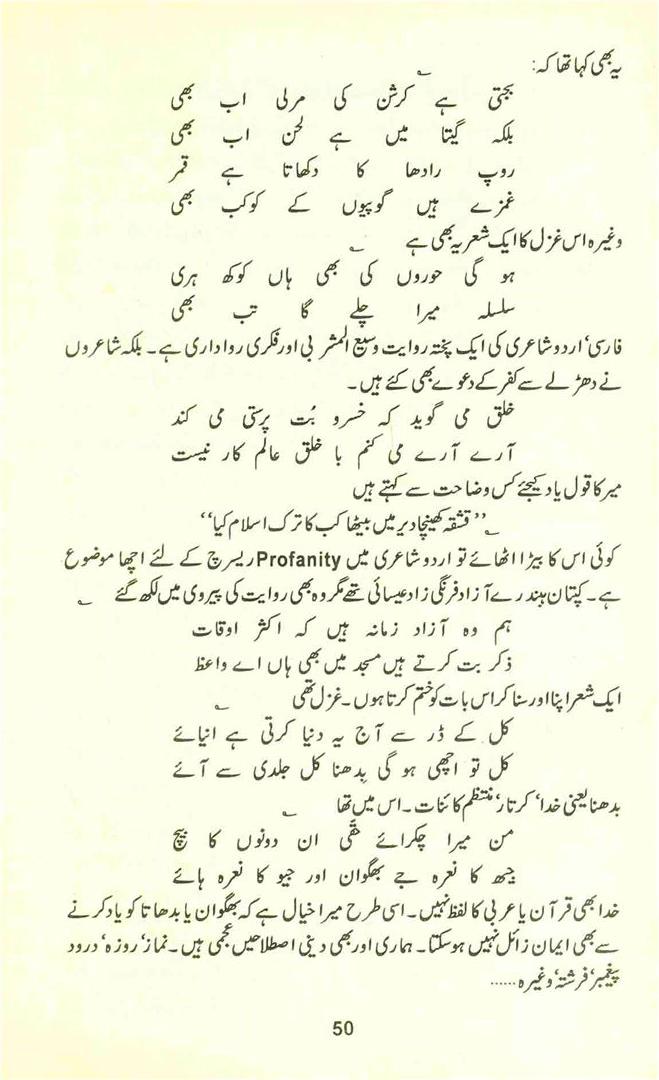 یہ بھی کہا تھا کہ:
بجتی ہے کرشن کی مرلی اب بھی
بلکہ گیتا میں ہے لحن اب بھی
روپ رادھا کا دکھاتا ہے قمر
غمزے ہیں گوپیوں کے کوکب بھی
وغیرہ اس غزل کا ایک شعر یہ بھی ہے
ہو گی حوروں کی بھی ہاں کوکھ ہری
سلسلہ میرا چلے گا تب بھی
فارسی‘ اردو شاعری کی ایک پختہ روایت وسیع المشربی اور فکری رواداری ہے۔ بلکہ شاعروں
نے دھڑلے سے کفر کے دعوے بھی کئے ہیں۔
خلق می گوید کہ خسرو بُت پرستی می کند
آرے آرے می کنم با خلق عالم کار نیست
میر کا قول یاد کیجئے کس وضاحت سے کہتے ہیں
’’قشقہ کھینچا دیر میں بیٹھا کب کا ترک اسلام کیا‘‘
کوئی اس کا بیڑا اٹھائے تو اردو شاعری میں Profanity ریسرچ کے لئے اچھا موضوع
ہے۔ کپتان ہندرے آزاد فرنگی زاد عیسائی تھے مگر وہ بھی روایت کی پیروی میں لکھ گئے
ہم وہ آزاد زمانہ ہیں کہ اکثر اوقات
ذکر بت کرتے ہیں مسجد میں بھی ہاں اے واعظ
ایک شعر اپنا اور سنا کر اس بات کو ختم کرتا ہوں۔ غزل تھی
کل کے ڈر سے آج یہ دنیا کرتی ہے انیائے
کل تو اچھی ہو گی بِدھنا کل جلدی سے آئے
بدھنا یعنی خدا‘ کرتار‘ منتظم کائنات۔ اس میں تھا
من میرا چکرائے حقّی ان دونوں کا بیچ
جیھ کا نعرہ جے بھگوان اور جیو کا نعرہ ہائے
خدا بھی قرآن یا عربی کا لفظ نہیں۔ اسی طرح میرا خیال ہے کہ بھگوان یا بدھاتا کو یاد کرنے
سے بھی ایمان زائل نہیں ہو سکتا۔ ہماری اور بھی دینی اصطلاحیں عجمی ہیں۔ نماز‘ روزہ‘ درود
پیغمبر‘ فرشتہ‘ وغیرہ……
50